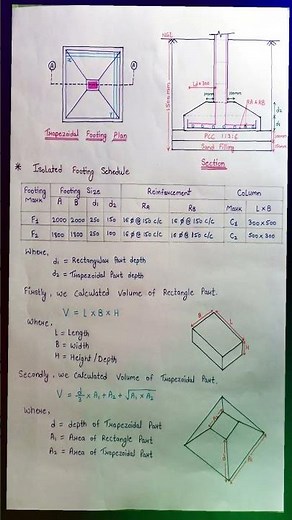 NGL
A
A
Ld = 300
1500mm
RA & RB
d2
d1
PCC 1:3:6
Sand Filling
Trapezoidal Footing Plan
Section
* Isolated Footing Schedule
Footing Mark | Footing Size | Reinforcement | Column
A | B | d1 | d2 | RA | RB | Mark | L x B
F1 | 2000 | 2000 | 250 | 150 | 16 ø @ 150 c/c | 16 ø @ 150 c/c | C1 | 300 x 500
F2 | 1800 | 1800 | 250 | 100 | 16 ø @ 150 c/c | 16 ø @ 150 c/c | C2 | 500 x 300
Where,
d1 = Rectangular Part depth
d2 = Trapezoidal Part depth
Firstly, we Calculated Volume of Rectangle Part.
V = L x B x H
Where,
L = Length
B = Width
H = Height/Depth
B
L
H
Secondly, we Calculated Volume of Trapezoidal Part.
V = d/3 x A1 + A2 + √A1 x A2
Where,
d = depth of Trapezoidal Part
A1 = Area of Rectangle Part
A2 = Area of Trapezoidal Part